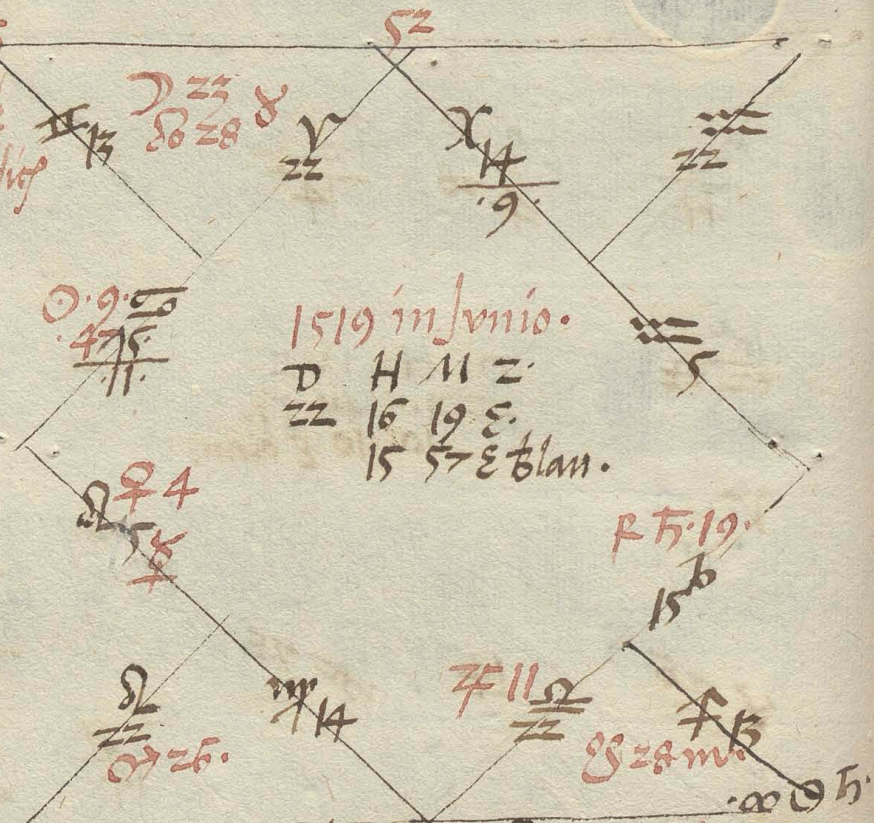 52
☽ 22 ♉
☊ 28
♊ 13
♈ 22
♓ 14
.9.
♒ 22
☉.9.♋
.47 15
.11.
1519 in Junio.
D H M Z.
22 16 19 Ɛ.
15 57 Ɛ blan.
♒ 5
♌ ♀ 4
5 ☿
R ♄.19.
15 ♑
♌
22
♂ 26.
♍ 14
♃ 11 ♎
22
☋ 28 ♏.
♐ 13
.☍ ☉ ♄.